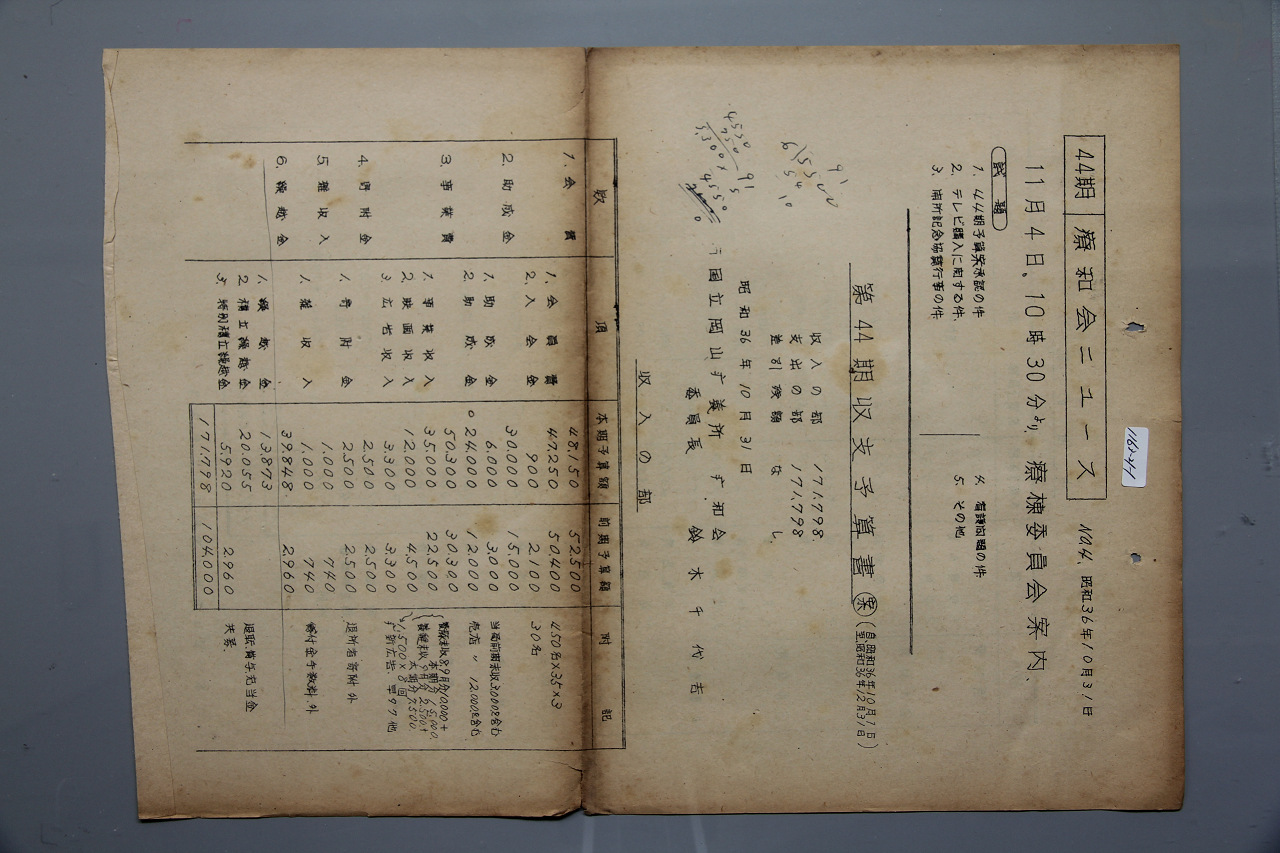 44期 療和会ニュース NO4. 昭和36年10月31日
11月4日、10時30分より、療棟委員会案内、
議題
1. 44期予算案承認の件
2. テレビ購入に関する件、
3. 開所記念協賛行事の件
4. 看護問題の件
5. その他
第44期収支予算書 案 (自昭和36年10月1日 至昭和36年12月31日)
収入の部 171.798.
支出の部 171.798
差引残額 なし
昭和36年10月31日
国立岡山療養所 療和会
委員長 鈴木千代吉
収入の部
款 項 本期予算額 前期予算額 附記
1. 会費 48.150 52.500
1. 会員費 47.250 50.400 450名×35×3
2. 入会金 900 2100 30名
2. 助成金 30.000 15.000
1. 助成金 6.000 3.000 当局前期未収3000を含む
2. 助成金 24.000 12.000 売店 〃 12000を含む
3. 事業費 50.300 30.300
1. 事業収入 35.000 22.500
2. 映画収入 12.000 4.500
3. 広告収入 3.300 3.300
4. 寄附金 2.500 2.500
1. 寄附金 2.500 2.500 退所者寄附外
5. 雑収入 1.000 740
1. 雑収入 1.000 740 寄付金手数料外
6. 繰越金 39.848 2960
1. 繰越金 13.873
2. 積立繰越金 20.055 退職賞与充当金
3. 特別積立繰越金 5.920 2.960 共募
171.798 104.000